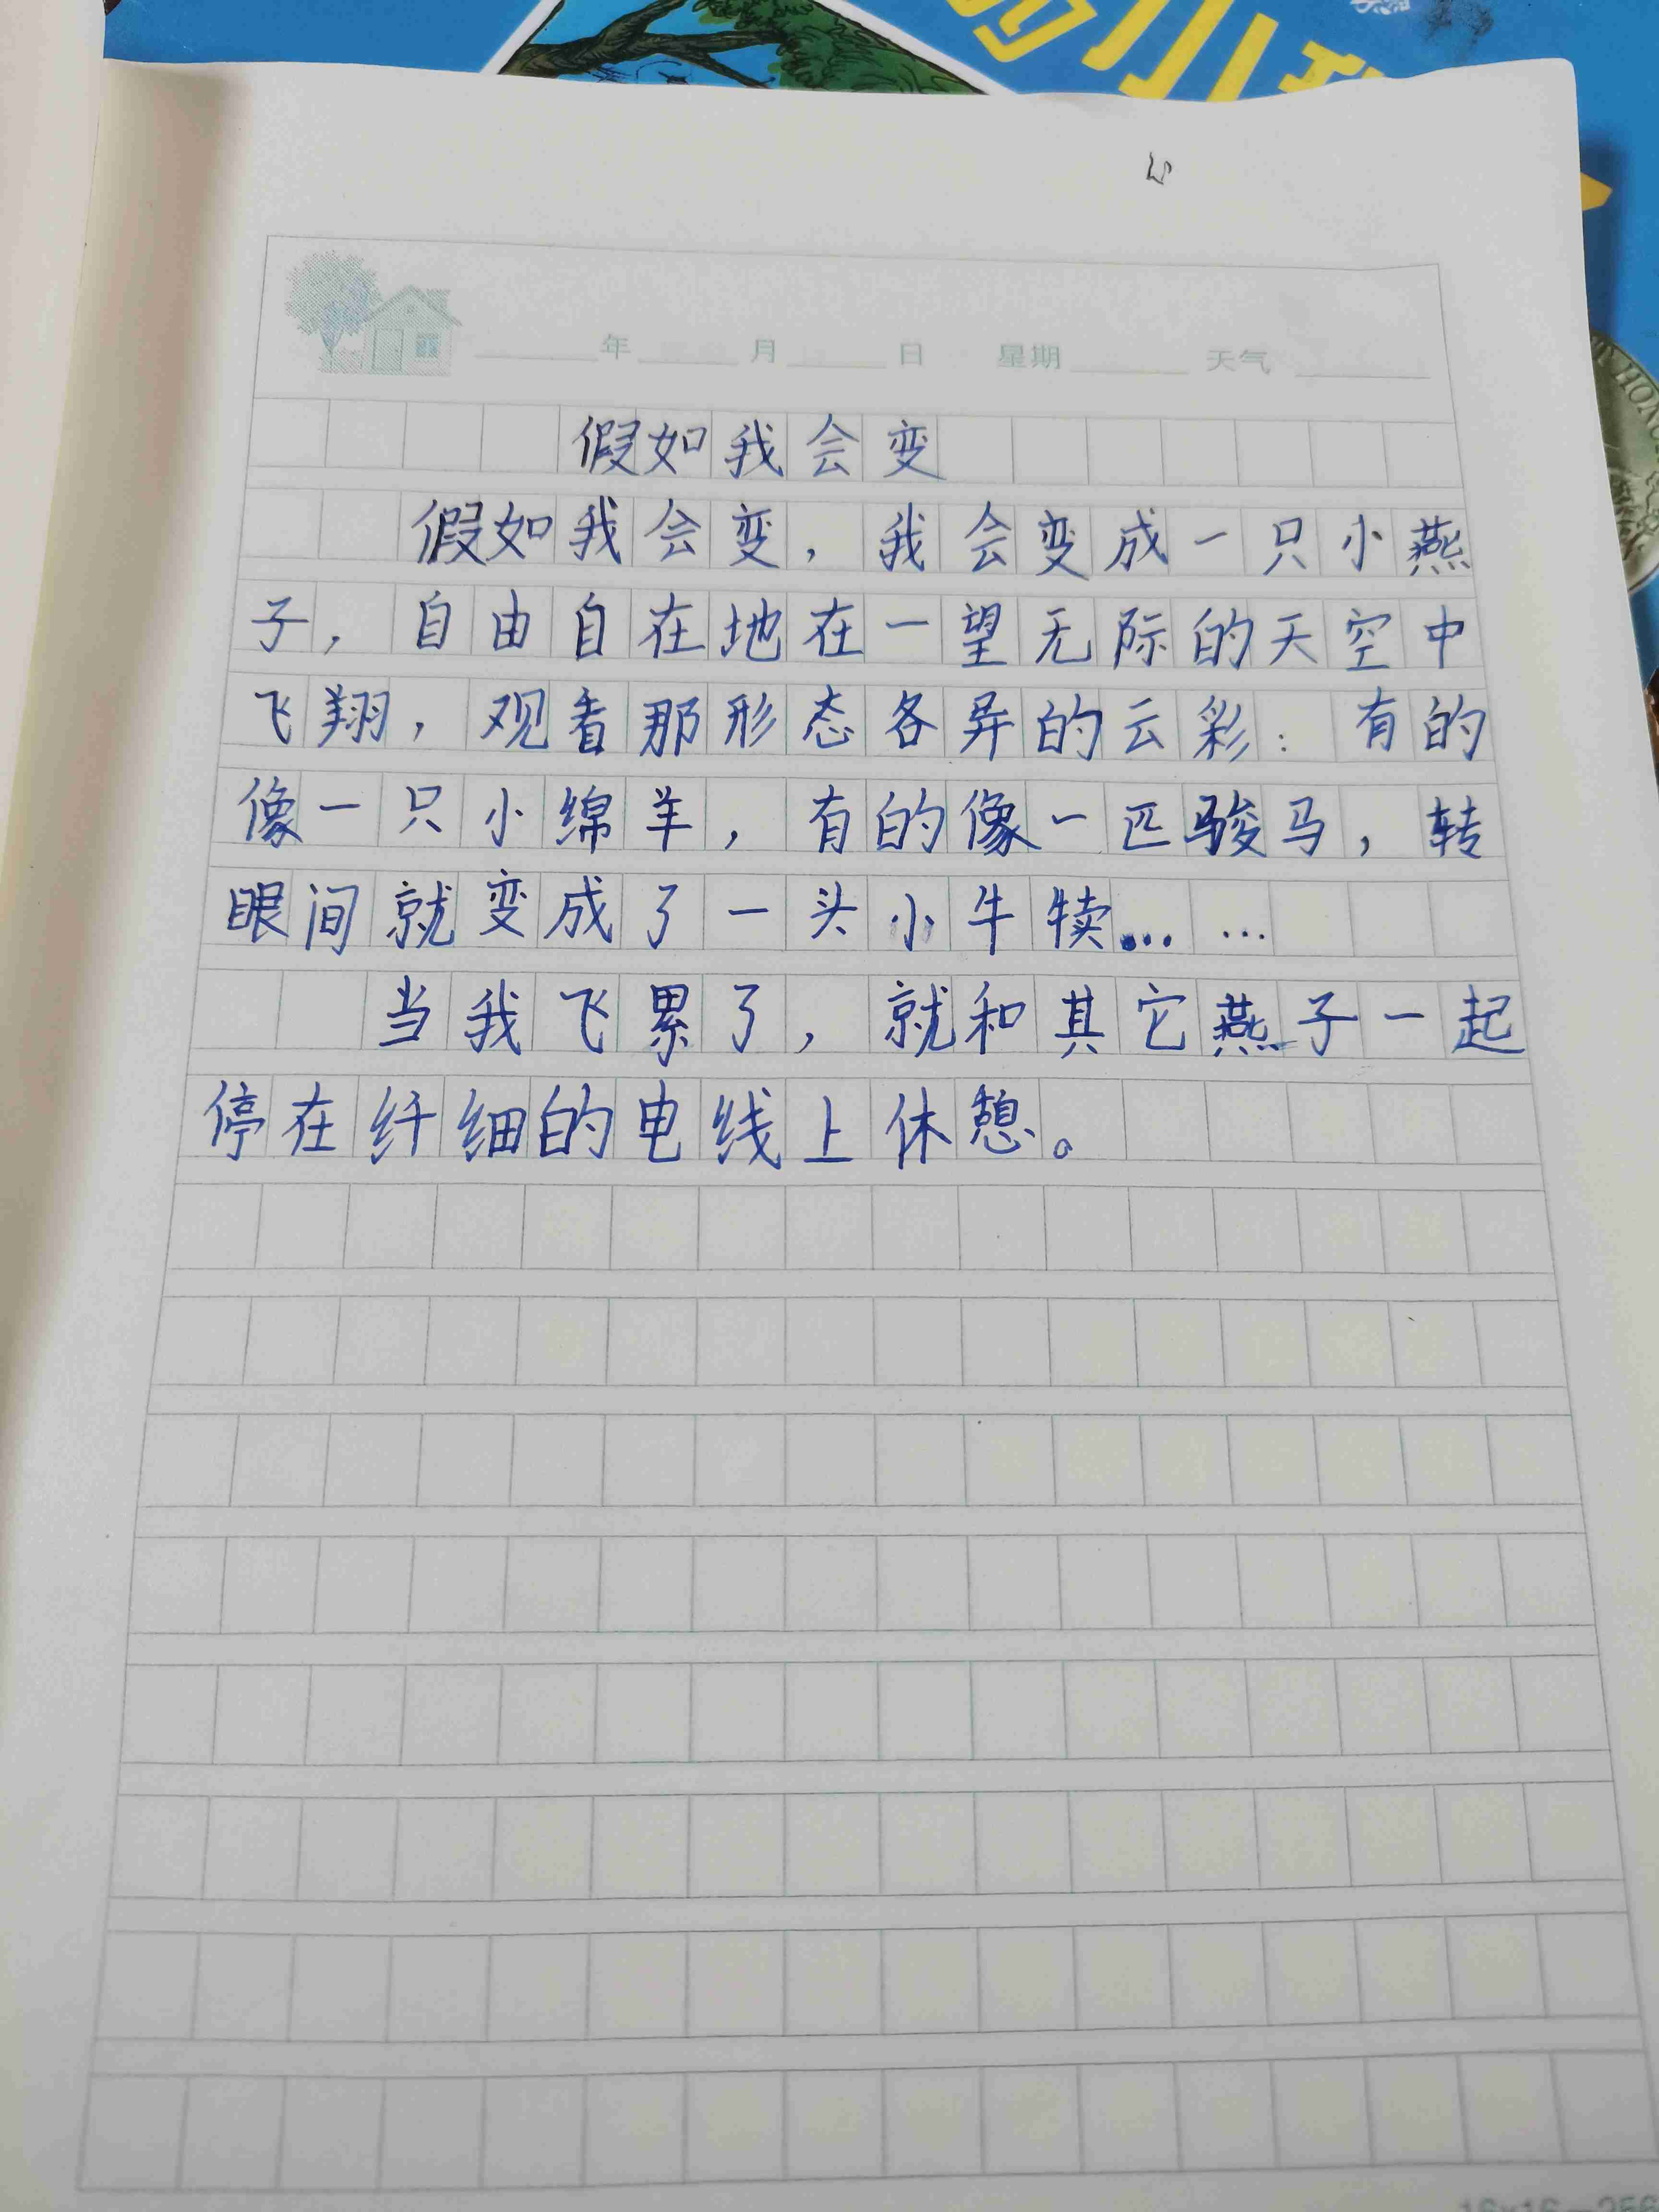 年 月 日 星期 天气
假如我会变
假如我会变，我会变成一只小燕
子，自由自在地在一望无际的天空中
飞翔，观看那形态各异的云彩：有的
像一只小绵羊，有的像一匹骏马，转
眼间就变成了一头小牛犊……
当我飞累了，就和其它燕子一起
停在纤细的电线上休憩。